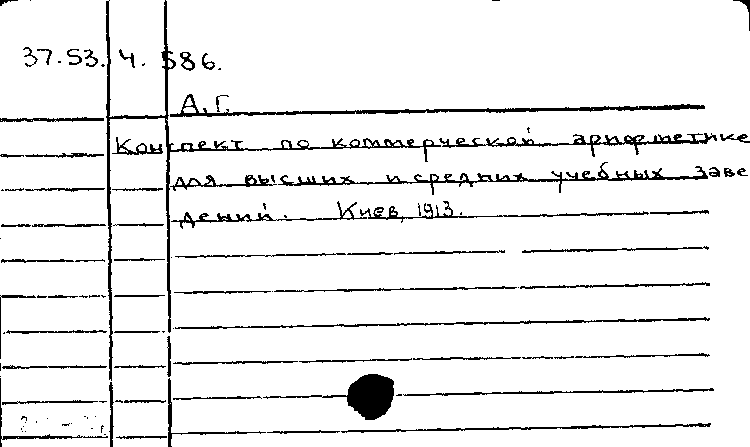 37.53. 4. 586.
А.Г.
Конспект по коммерческой арифметике
для высших и средних учебных заве
дений. Киев, 1913.